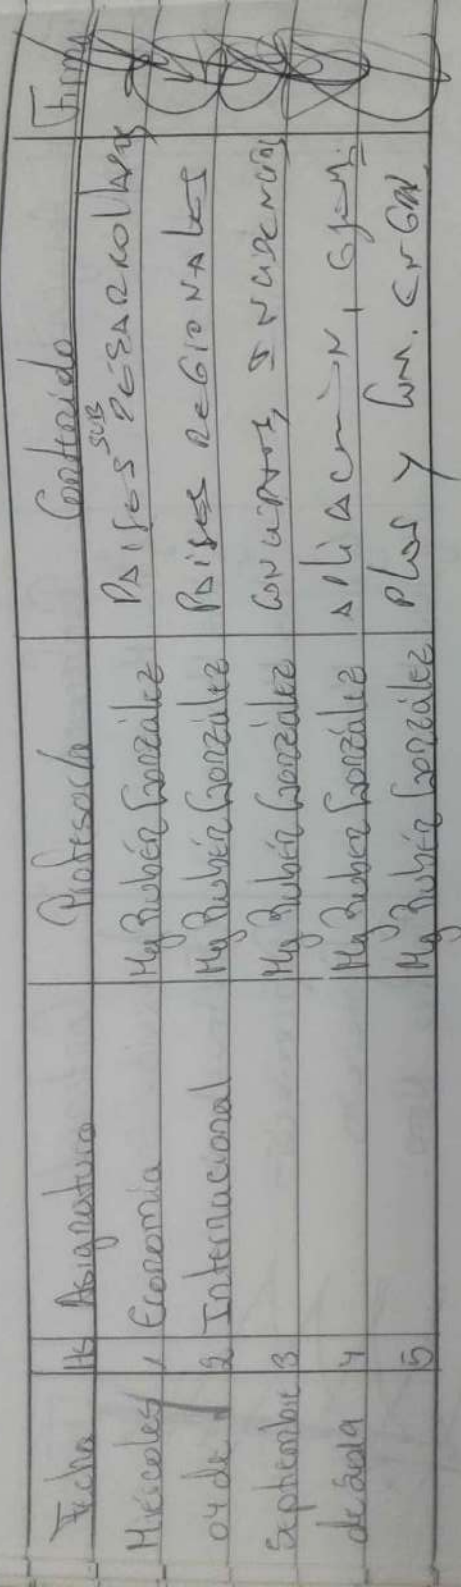 Fecha Hs Asignatura Profesor/a Contenido Firma
Miércoles 1 Economía Mg Rubén González PAISES SUB DESARROLLADOS
04 de 2 Internacional Mg Rubén González PAISES REGIONALES
Septiembre 3 Mg Rubén González CONCEPTOS, INCIDENCIAS
de 2019 4 Mg Rubén González APLICACIÓN,
5 Mg Rubén González y